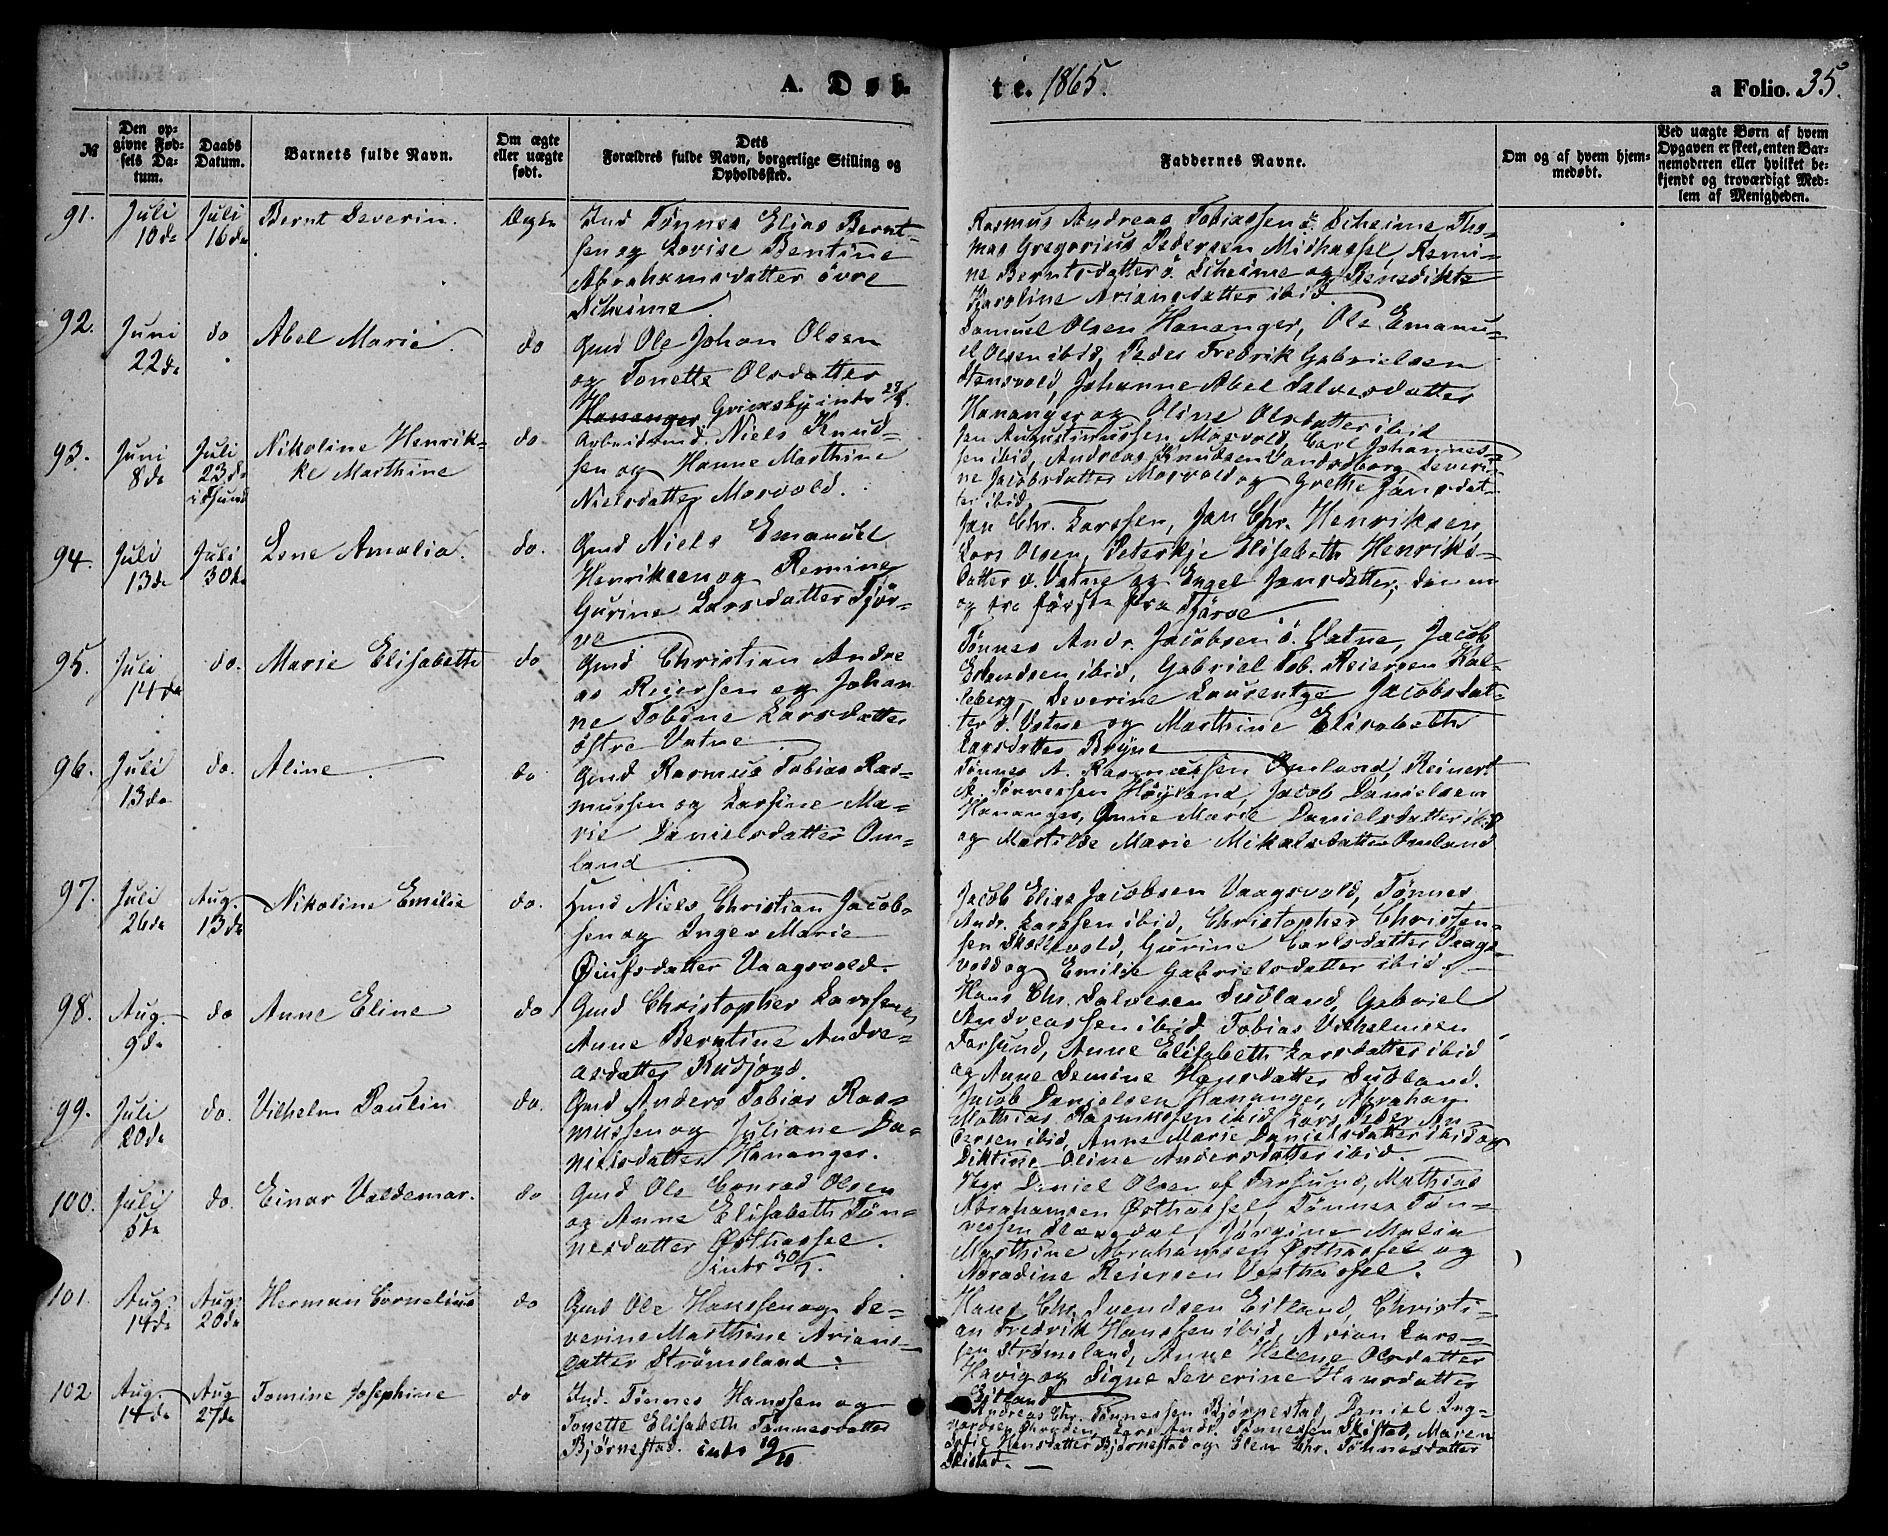 A. Døb-
te. 1865.
a Folio. 35.
№
Den op-
givne Fød-
sels Da-
tum.
Daabs
Datum.
Barnets fulde Navn.
Om ægte
eller uægte
født.
Dets
Forældres fulde Navn, borgerlige Stilling og
Opholdssted.
Faddernes Navne.
Om og af hvem hjem-
medøbt.
Ved uægte Børn af hvem
Opgaven er skeet, enten Bar-
nemoderen eller hvilket be-
kjendt og troværdigt Med-
lem af Menigheden.
91.
Juli
10de
Juli
16de
Bernt Severin.
Ægte
Ind Tønnes Elias Bernt-
sen og Lovise Bentine
Abrahamsdatter övre
Scheime.
Rasmus Andreas Tobiassen ö. Scheime, Tho-
mas Gregorius Pedersen Midhassel, Remi-
ne Berntsdatter ö Scheime og Benedikte
Karoline Ariansdatter ibid.
92.
Juni
22de
do
Abel Marie.
do
Gmd Ole Johan Olsen
og Tonette Olsdatter
Hananger Grimsby intr
Samuel Olsen Hananger, Ole Emanu-
el Olsen ibid, Peder Fredrik Gabrielsen
Stensvold, Johanne Abel Salvesdatter
Hananger og Oline Olsdatter ibid
93.
Juni
8de
Juli
23de
i Fsund
Nikoline Henrik-
ke Marthine
do
Arbeidsmd. Niels Knud-
sen og Hanne Marthine
Nielsdatter Mosvold.
Jen Augustinussen Mosvold, Carl Johannes-
sen ibid, Andreas Knudsen Vandsborg, Severi-
ne Jacobsdatter Mosvold og Grethe Jansdat-
ter ibid
94.
Juli
13de
Juli
30te
Lene Amalia.
do.
Gmd Niels Emanuel
Henriksen og Remine
Gurine Larsdatter Tjör-
ve
Jan Chr. Larssen, Jan Chr. Henriksen,
Lars Olsen, Peterkje Elisabeth Henriks-
datter v. Vatne og Engel Jansdatter, den en
og tre förste fra Tjörve.
95.
Juli
14de
do.
Marie Elisabeth
do
Gmd Christian Andre
as Reiersen og Johan
ne Tobine Larsdatter
östre Vatne.
Tönnes Andr. Jacobsen ö. Vatne, Jacob
Erlandsen ibid, Gabriel Tob. Reiersen Kal-
leberg, Severine Laurentze Jacobsdat-
ter ö. Vatne og Marthine Elisabeth
Larsdatter Bryne
96.
Juli
13de
do.
Aline.
do
Gmd Rasmus Tobias Ras-
mussen og Larsine Ma-
rie Danielsdatter Om-
land.
Tönnes A. Rasmussen Omland, Reinert
A. Tönnessen Höyland, Jacob Danielsen
Hananger, Anne Marie Danielsdatter ibid
og Matilde Marie Mikalsdatter Omland
97.
Juli
26de
Aug.
13de
Nikoline Emilie
do.
Hmd Niels Christian Jacob-
sen og Inger Marie
Vaagsvold.
Jacob Elias Jacobsen Vaagsvold, Tönnes
Andr. Larssen ibid, Christopher Christen-
sen Skollevold, Gurine Carlsdatter Vaags-
vold og Emilie Gabrielsdatter ibid.
98.
Aug.
9de
do
Anne Eline
do
Gmd Christopher Larssen og
Anne Berntine Andre-
asdatter Rudjord.
Hans Chr. Salvesen Sudland, Gabriel
Andreassen ibid, Tobias Vilhelmsen
Farsund, Anne Elisabeth Larsdatter ibid
og Anne Semine Hansdatter Sudland.
99.
Juli
20de
do.
Vilhelm Paulin
do.
Gmd Anders Tobias Ras-
mussen og Juliane Da-
nielsdatter Hananger.
Jacob Danielsen Hananger, Abraham
Mathias Rasmussen ibid, Lars Peder An-
dersen ibid, Anne Marie Danielsdatter ibid og
Diktine Oline Andersdatter ibid.
100.
Juli
5te
do.
Einar Valdemar.
do
Gmd Ole Conrad Olsen
og Anne Elisabeth Tön-
nesdatter Østhassel.
intr 30/7.
Daniel Olsen af Farsund, Mathias
Abrahamsen Østhassel, Tönnes Tön-
nessen Jörgine Malia
Marthine Abrahamsen Østhassel og
Noradine Reiersen Vesthassel.
101.
Aug.
14de
Aug.
20de
Herman Cornelius
do
Gmd Ole Hanssen og Se-
verine Marthine Arians-
datter Strömsland.
Hans Chr. Svendsen Eitland, Christi-
an Fredrik Hanssen ibid, Arian Lars-
sen Strömsland, Anne Helene Olsdatter
Havig og Signe Severine Hansdatter
Eitland
102
Aug.
14de
Aug
27de
Tomine Josephine
do
Ind. Tönnes Hanssen og
Tonette Elisabeth Tönnesdatter
Björnestad. intr 19/11
Andreas Chr. Tönnessen Björnestad, Daniel Ing-
Lars Andr. Tönnessen Skistad, Maren
Sofie Hansdatter Björnestad og Elen Chr. Tönnesdatter
Skistad.